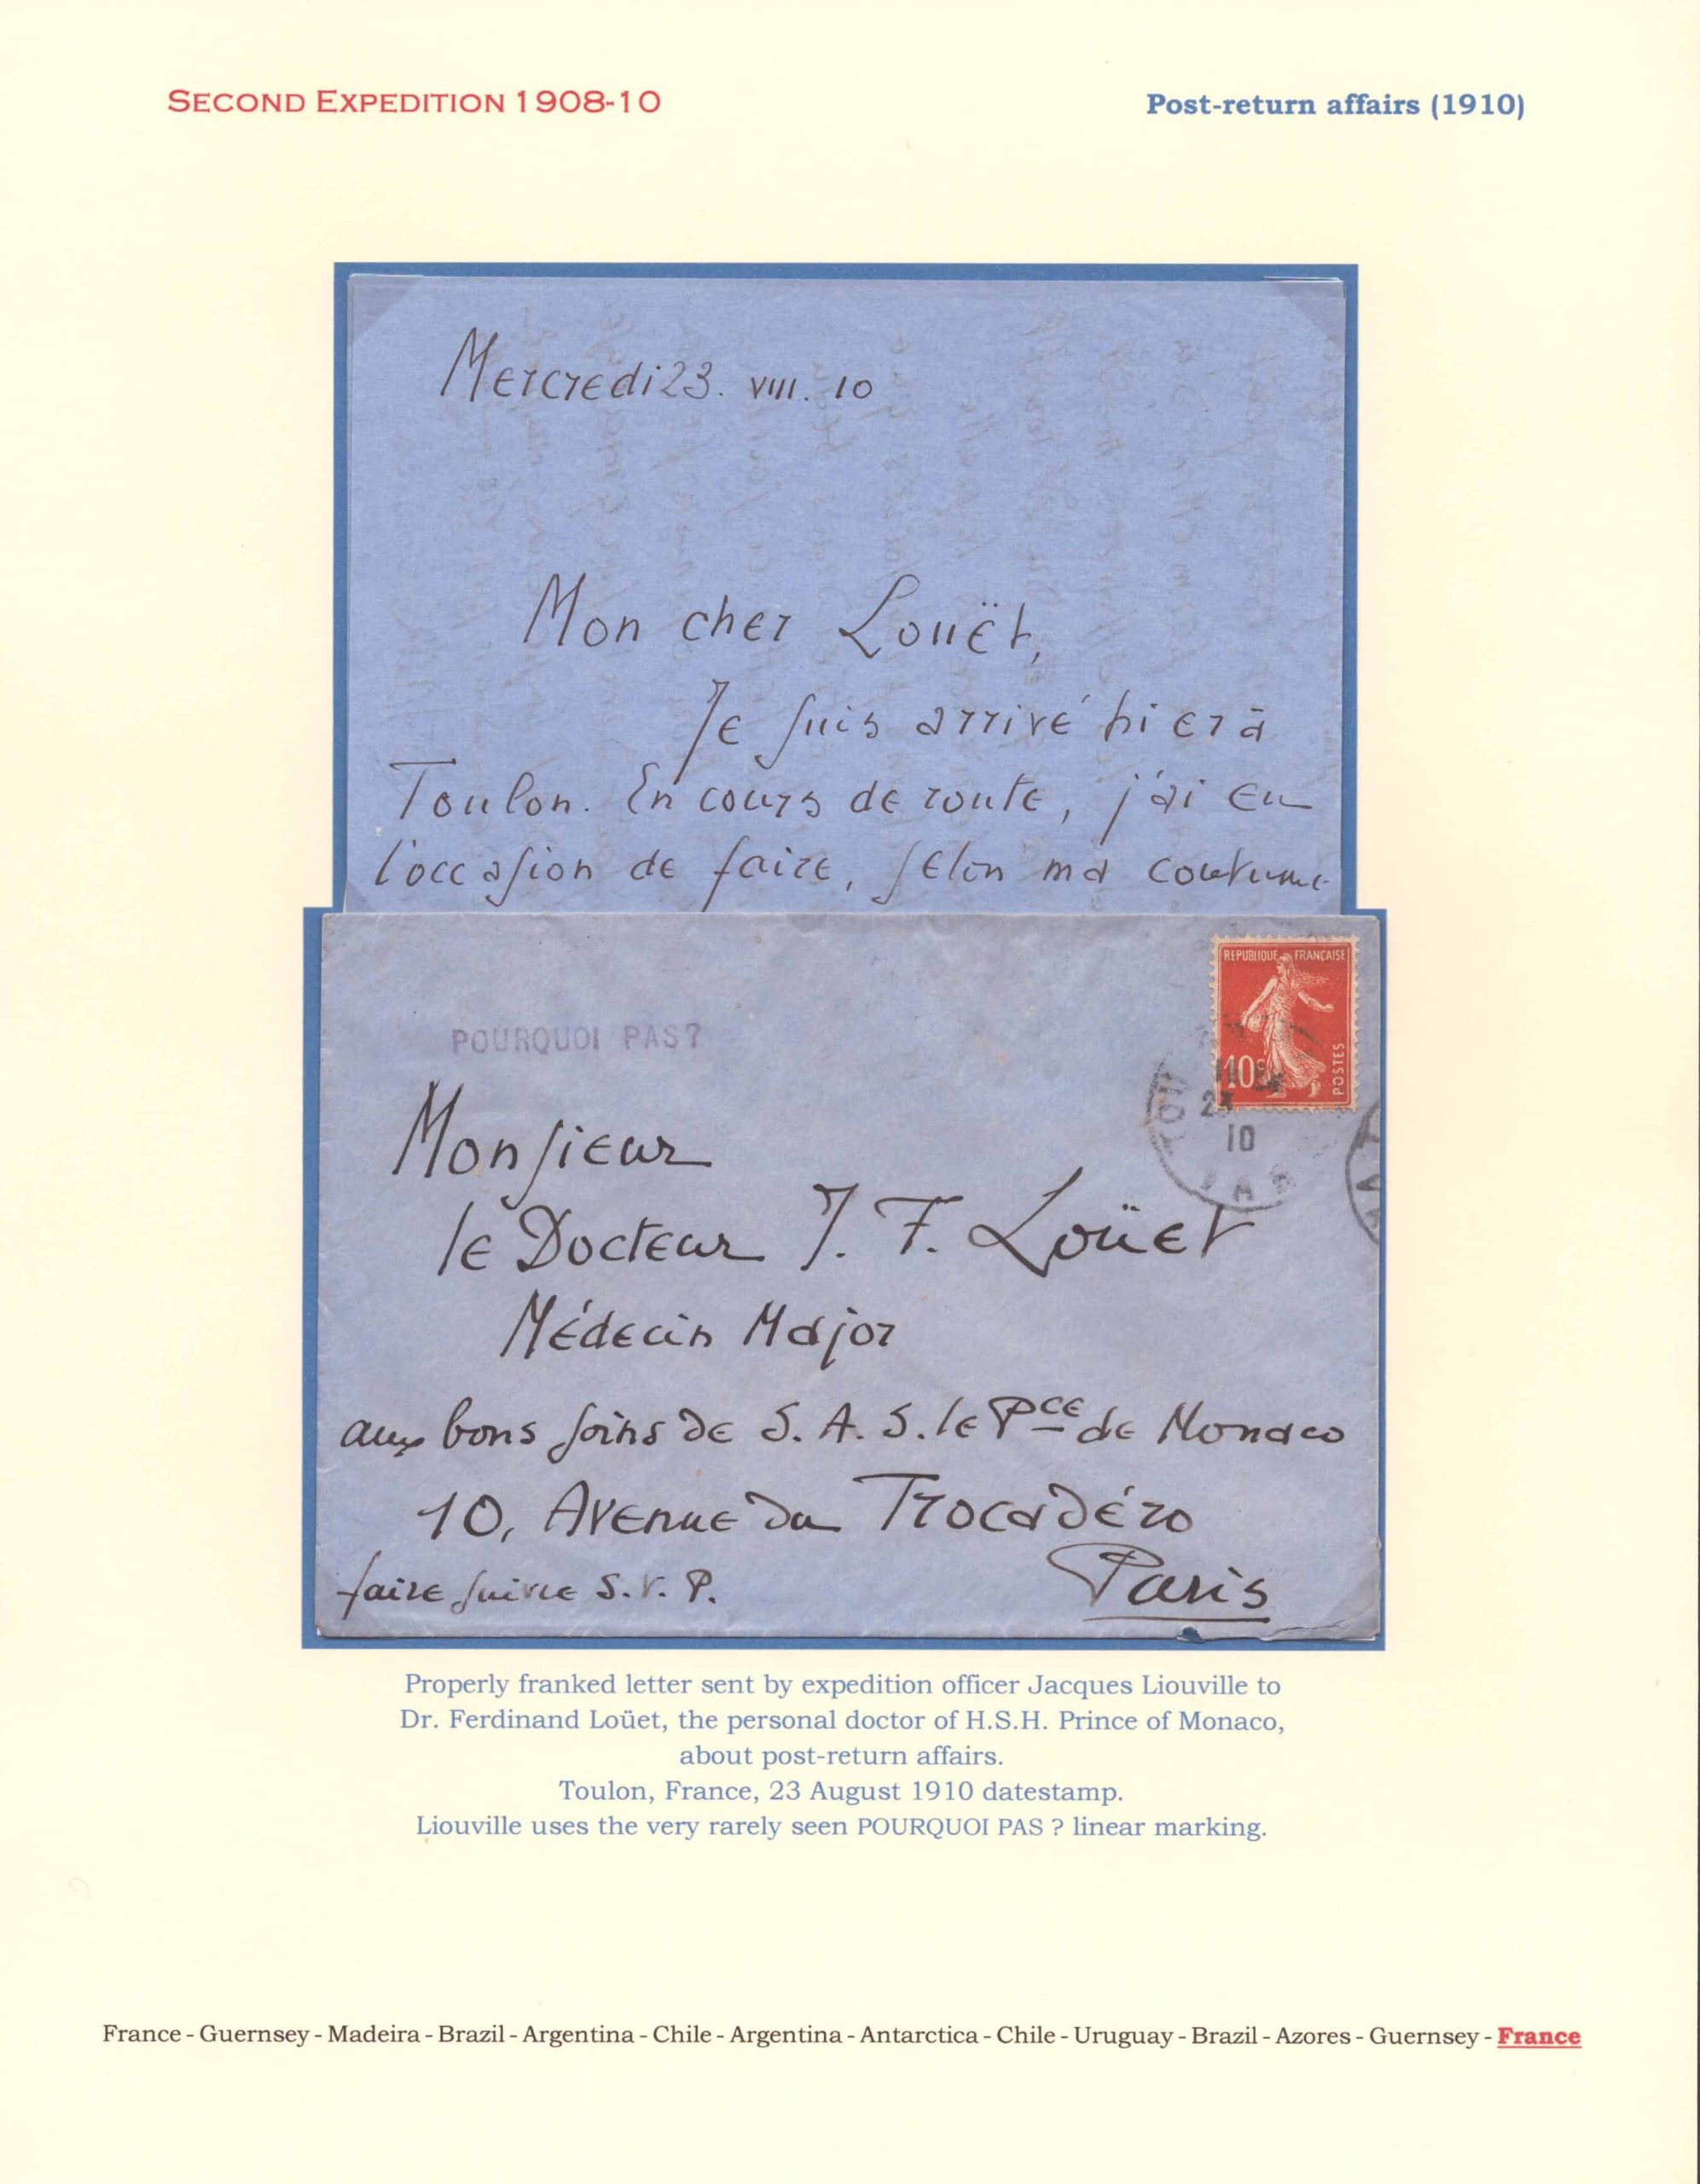 SECOND EXPEDITION 1908-10
Post-return affairs (1910)
Mercredi 23. VIII. 10
Mon cher Louët,
Je suis arrivé hier à
Toulon. En cours de route, j'ai eu
l'occasion de faire, selon ma coutume
REPUBLIQUE FRANÇAISE
10c
POSTES
TOU
23
10
VAR
POURQUOI PAS?
Monsieur
le Docteur J. F. Loüet
Médecin Major
aux bons soins de S. A. S. le Pce de Monaco
10, Avenue du Trocadéro
Paris
faire suivre S. V. P.
Properly franked letter sent by expedition officer Jacques Liouville to
Dr. Ferdinand Loüet, the personal doctor of H.S.H. Prince of Monaco,
about post-return affairs.
Toulon, France, 23 August 1910 datestamp.
Liouville uses the very rarely seen POURQUOI PAS ? linear marking.
France - Guernsey - Madeira - Brazil - Argentina - Chile - Argentina - Antarctica - Chile - Uruguay - Brazil - Azores - Guernsey - France